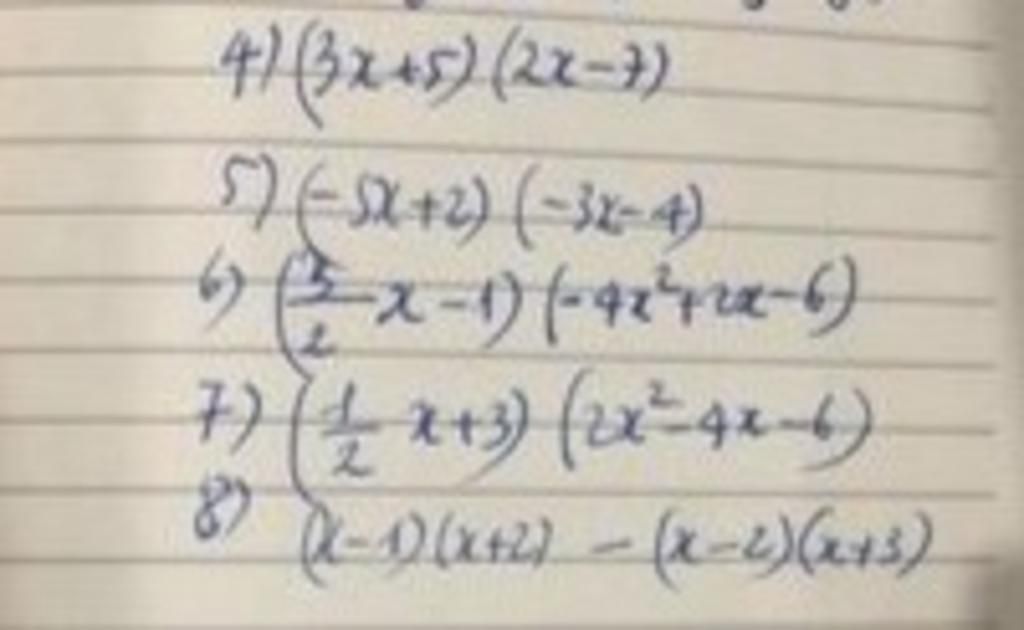 4) (3x+5) (2x-7)
5) (-5x+2) (-3x-4)
6) (5/2 x - 1) (-4x²+2x-6)
7) (1/2 x+3) (2x²-4x-6)
8) (x-1)(x+2) - (x-2)(x+3)